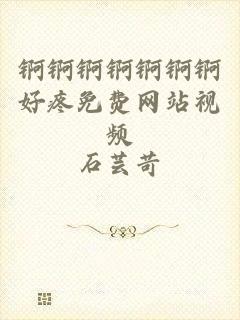 锕锕锕锕锕锕锕
好疼免费网站视
频
石芸苛